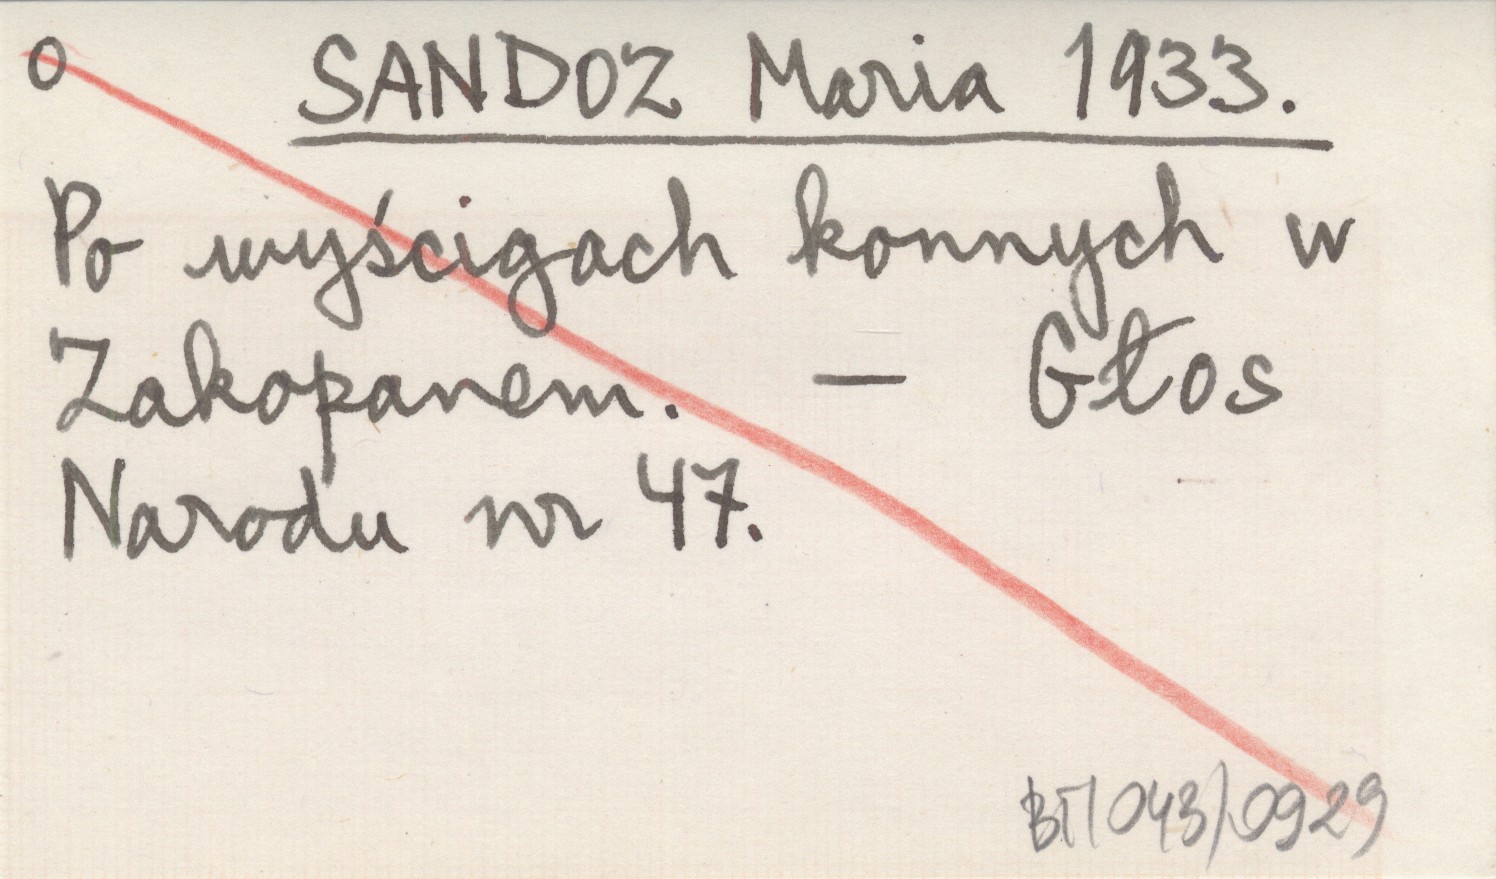 O SANDOZ Maria 1933.
Po wyścigach konnych w
Zakopanem. — Głos
Narodu nr 47.
043/0929